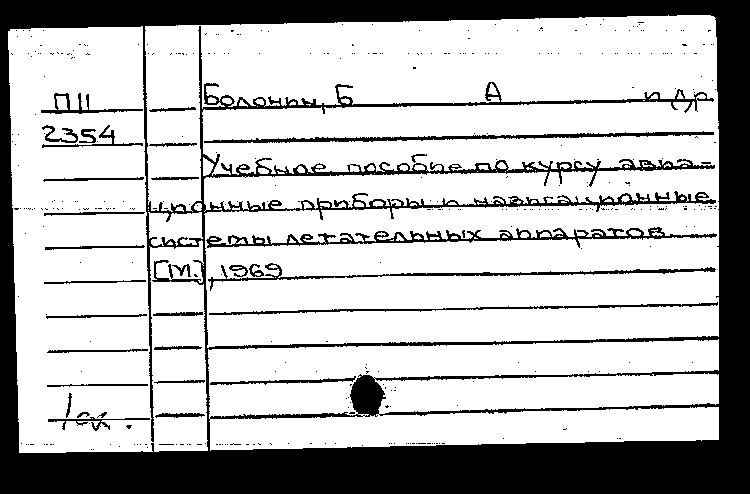 П11 Болонин, Б А и др
2354
Учебное пособие по курсу авиа-
ционные приборы и навигационные
системы летательных аппаратов
[М.], 1969
1 эк.